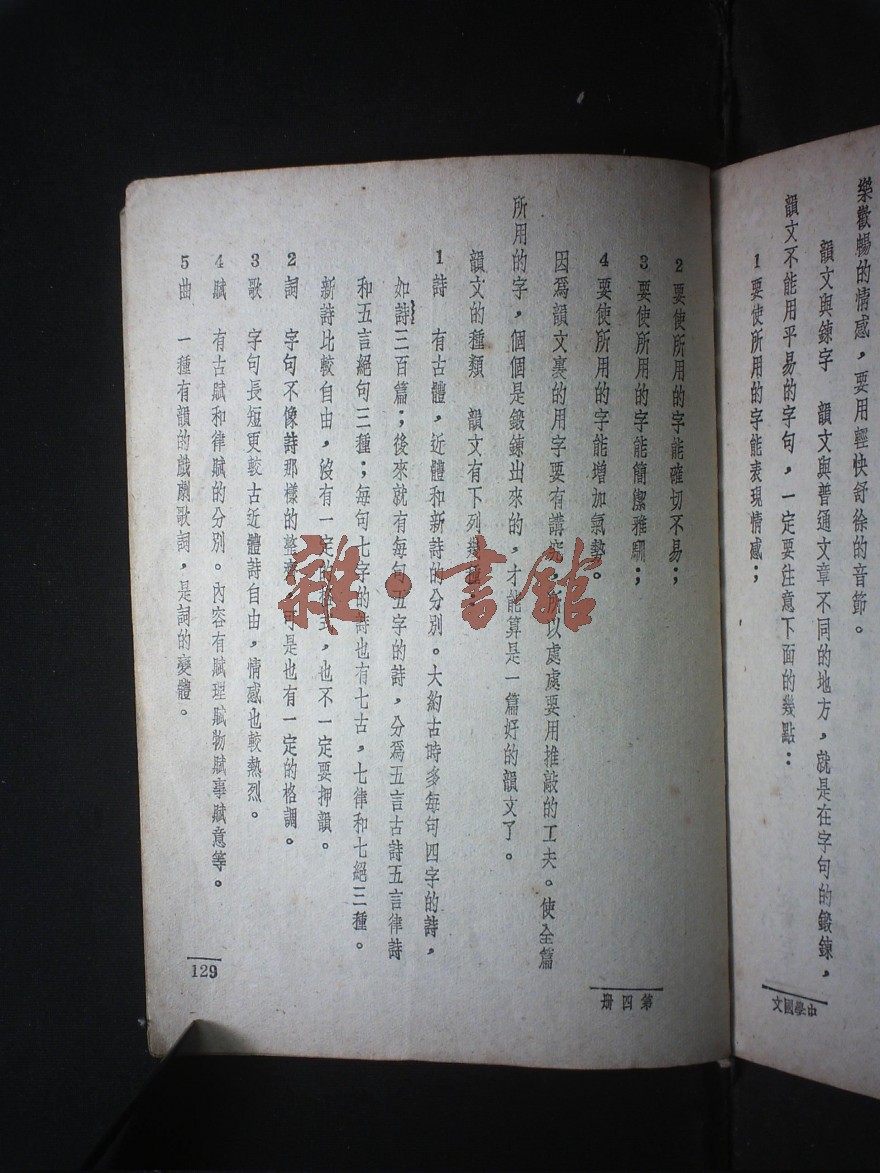 樂歡暢的情感，要用輕快舒徐的音節。
韻文與鍊字　韻文與普通文章不同的地方，就是在字句的鍛鍊，
韻文不能用平易的字句，一定要注意下面的幾點：
1 要使所用的字能表現情感；
中學國文
2 要使所用的字能確切不易；
3 要使所用的字能簡潔雅馴；
4 要使所用的字能增加氣勢。
因爲韻文裏的用字要有講究，所以處處要用推敲的工夫。使全篇
所用的字，個個是鍛鍊出來的，才能算是一篇好的韻文了。
韻文的種類　韻文有下列幾種
1 詩　有古體，近體和新詩的分別。大約古時多每句四字的詩，
如詩三百篇；後來就有每句五字的詩，分爲五言古詩五言律詩
和五言絕句三種；每句七字的詩也有七古，七律和七絕三種。
新詩比較自由，沒有一定的格式，也不一定要押韻。
2 詞　字句不像詩那樣的整齊，可是也有一定的格調。
3 歌　字句長短更較古近體詩自由，情感也較熱烈。
4 賦　有古賦和律賦的分別。內容有賦理賦物賦事賦意等。
5 曲　一種有韻的戲劇歌詞，是詞的變體。
第四册
129
雜·書館